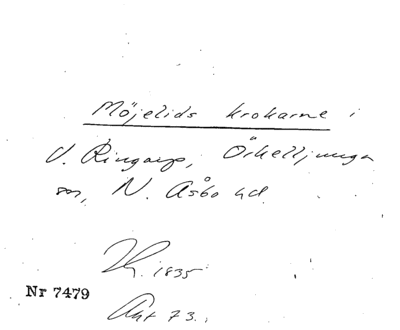 Möjelids krokarne i
V. Ringarp, Örkelljunga
sn, N. Åsbo hd.
1835
Nr 7479
73.